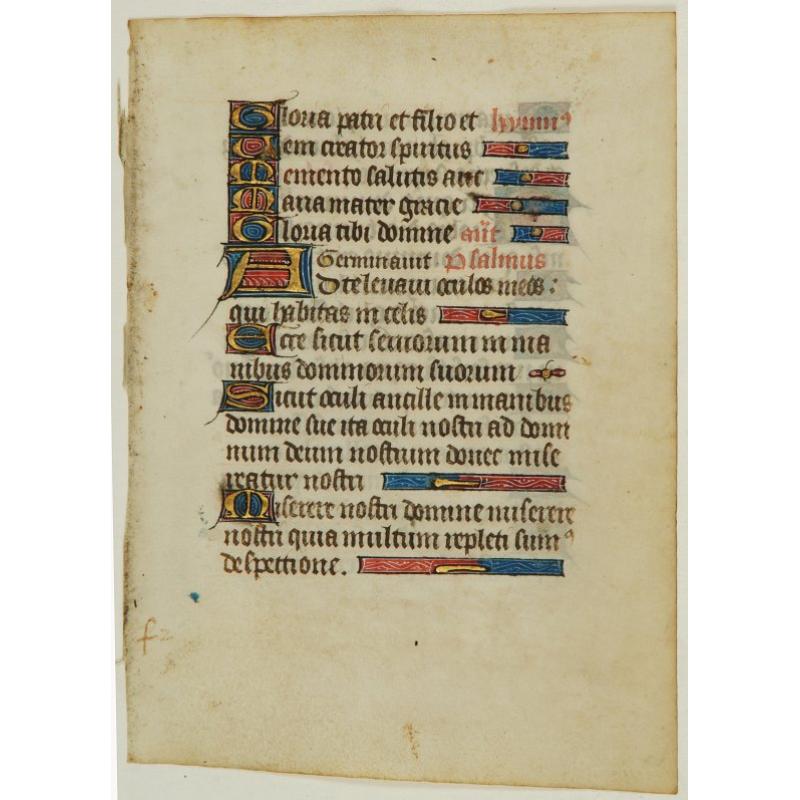 Gloria patri et filio et hymnꝰ
Veni creator spiritus
Memento salutis auc
Maria mater gracie
Gloria tibi domine añt
Germinauit Psalmus
Ad te leuaui oculos meos :
qui habitas in celis
Ecce sicut seruorum in ma
nibus dominorum suorum
Sicut oculi ancille in manibus
domine sue ita oculi nostri ad domi
num deum nostrum donec mise
reatur nostri
Miserere nostri domine miserere
nostri quia multum repleti sumꝰ
despectione.
f